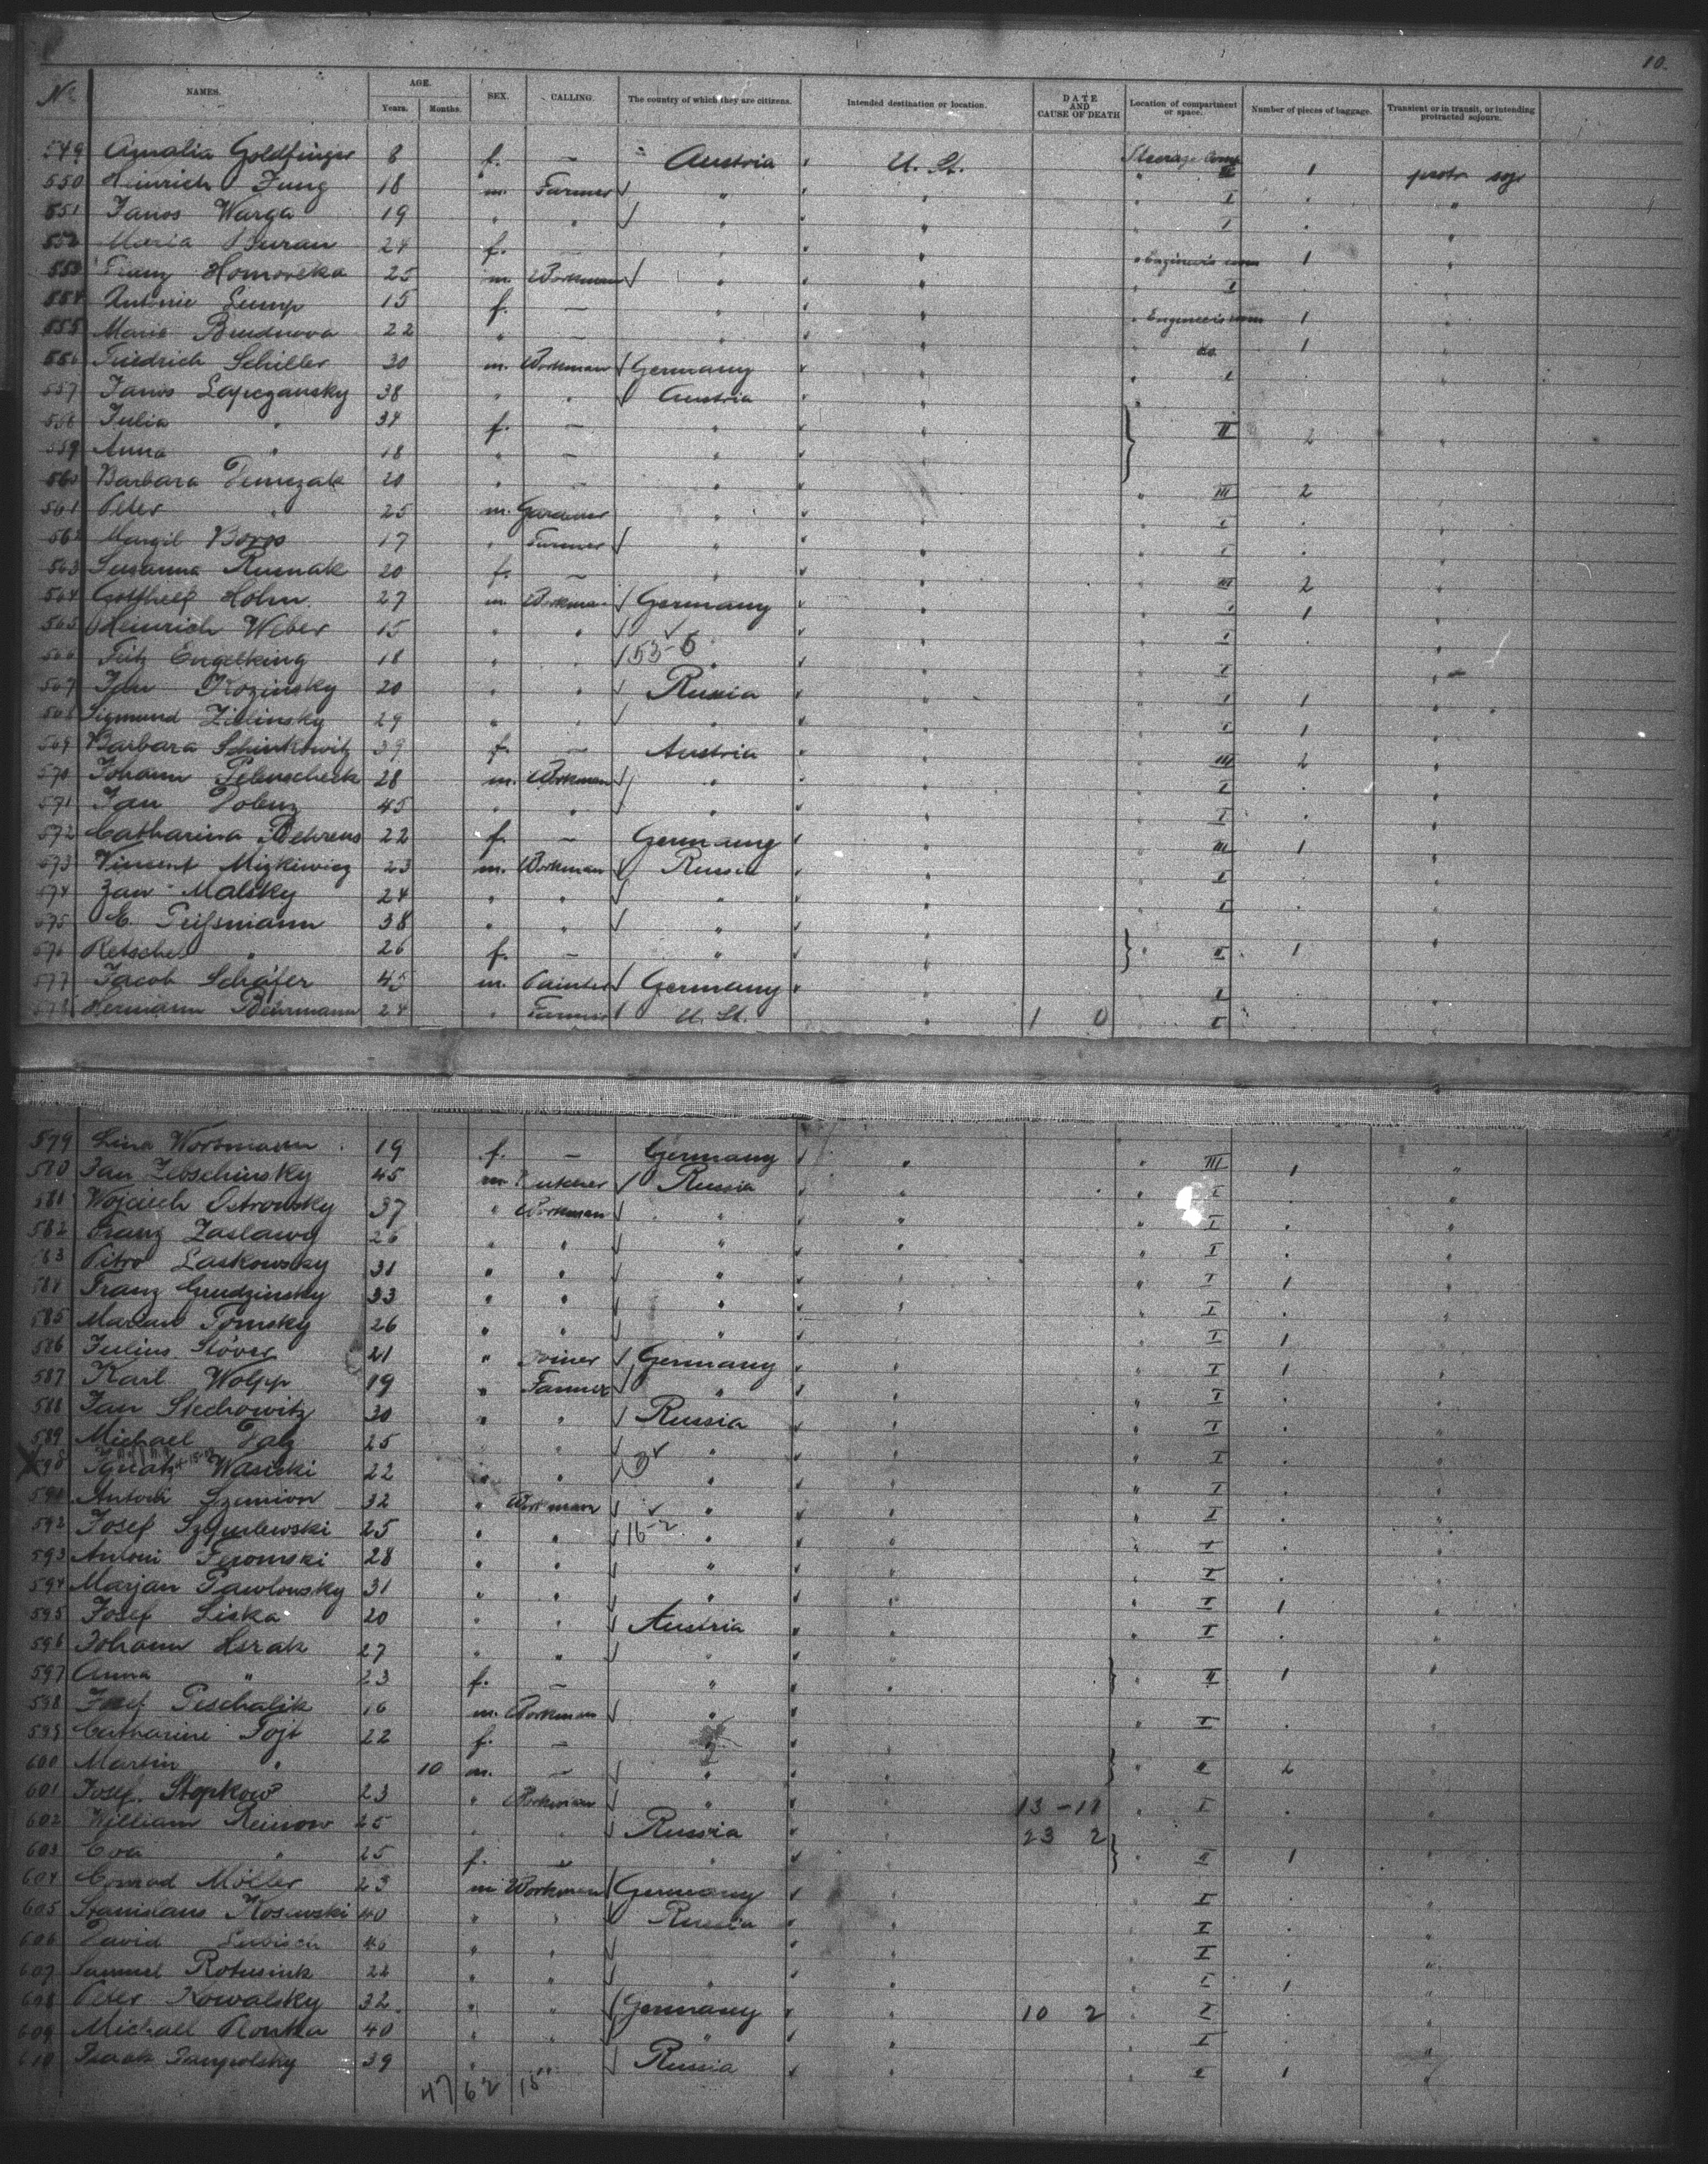 10.
No. NAMES. AGE. Years. Months. SEX. CALLING. The country of which they are citizens. Intended destination or location. DATE AND CAUSE OF DEATH Location of compartment or space. Number of pieces of baggage. Transient or in transit, or intending protracted sojourn.
549 Amalia Goldfinger 8 f. — Austria U. St. Steerage 1
550 Heinrich Jung 18 m. Farmer " " " I . "
551 Janos Warga 19 " " " " " I . "
552 Maria Duran 24 f. — " " " 1 "
553 Franz Homoreka 25 m. Workman " " " I . "
554 Antonie Lump 15 f. — " " " Engineers 1 "
555 Marie Brudnova 22 " — " " " do. 1 "
556 Friedrich Schiller 30 m. Workman Germany " " I . "
557 Janos Lapczansky 38 " " Austria "
558 Julia " 34 f. — " " II 2 "
559 Anna " 18 " — " "
560 Barbara 20 " — " " " III 2 "
561 Peter " 25 m. Gardener " " " I . "
562 Boros 17 " Farmer " " " I . "
563 Susanna Rusnak 20 f. — " " " III 2 "
564 Gotthelf Hohn 27 m. Workman Germany " " I 1 "
565 Heinrich Weber 15 " " " " I . "
566 Fritz Engelking 18 " " 53-6 " " " I "
567 Jan Kozinsky 20 " " Russia " " I 1 "
568 Sigmund Zielinsky 29 " " " " " I 1 "
569 Barbara Schinkowitz 39 f. — Austria " " III 2 "
570 Johann 28 m. Workman " " " I . "
571 Jan 45 " " " " " I . "
572 Catharina Behrens 22 f. — Germany " " III 1 "
573 Vincent Mizkiewicz 23 m. Workman Russia " " I . "
574 Jan Malsky 24 " " " " " I . "
575 E. 38 " " " "
576 Retschel " 26 f. — " " " II 1 "
577 Jacob Schäfer 45 m. Painter Germany " " I . "
578 Hermann Behrmann 24 " Farmer U. St. " 1 0 " I . "
579 Lina Wortmann 19 f. — Germany " " III 1 "
580 Jan 45 m Russia " " I . "
581 Wojciech Ostrowsky 37 " Workman " " " I . "
582 Franz Zaslawy 26 " " " " " I . "
583 Pitro Laskowsky 31 " " " " " I 1 "
584 Franz Grudzinsky 33 " " " " " I . "
585 Marian Tomsky 26 " " " " " I 1 "
586 Julius Stöver 21 " Joiner Germany " " I 1 "
587 Karl Wolpp 19 " Farmer " " " I . "
588 Jan Stechowitz 30 " " Russia " " I . "
589 Michael 25 " " " " " I . "
590 Ignatz Wasiski 22 " " " " " I . "
591 Antoni Szemion 32 " Workman " " " I . "
592 Josef 25 " " 16-2 " " " I . "
593 Antoni 28 " " " " " I . "
594 Marjan Pawlowsky 31 " " " " " I 1 "
595 Josef Liska 20 " " Austria " " I . "
596 Johann Hsrak 27 " " " "
597 Anna " 23 f. — " " " II 1 "
598 Josef Peschalik 16 m. Workman " " " I . "
599 Catharine 22 f. — " "
600 Martin " 10 m. — " " " II 2 "
601 Josef Stopkow 23 " Workman " " 13 - 11 " I . "
602 William Reinow 25 " " Russia " 23 2
603 Eva " 25 f. — " " " II 1 "
604 Conrad Möller 23 m Workman Germany " " I . "
605 Stanislaus Kosewski 40 " " Russia " " I . "
606 David 46 " " " " I . "
607 Samuel 22 " " " " " I 1 "
608 Peter Kowalsky 32 " " Germany " 10 2 " I . "
609 Michael 40 " " " " " I . "
610 39 " " Russia " " 1 "
47 62 15